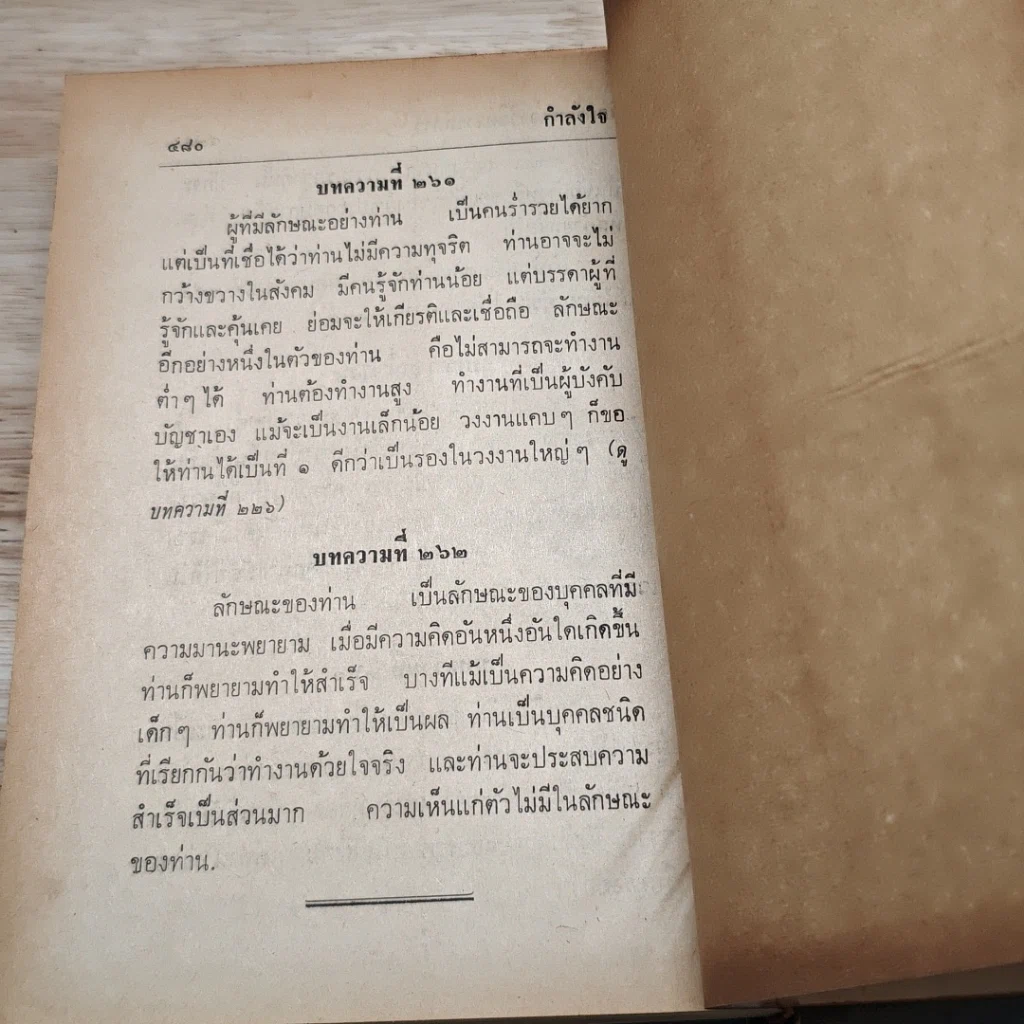 ๔๘๐ กำลังใจ
บทความที่ ๒๖๑
ผู้ที่มีลักษณะอย่างท่าน เป็นคนร่ำรวยได้ยาก
แต่เป็นที่เชื่อได้ว่าท่านไม่มีความทุจริต ท่านอาจจะไม่
กว้างขวางในสังคม มีคนรู้จักท่านน้อย แต่บรรดาผู้ที่
รู้จักและคุ้นเคย ย่อมจะให้เกียรติและเชื่อถือ ลักษณะ
อีกอย่างหนึ่งในตัวของท่าน คือไม่สามารถจะทำงาน
ต่ำๆ ได้ ท่านต้องทำงานสูง ทำงานที่เป็นผู้บังคับ
บัญชาเอง แม้จะเป็นงานเล็กน้อย วงงานแคบๆ ก็ขอ
ให้ท่านได้เป็นที่ ๑ ดีกว่าเป็นรองในวงงานใหญ่ๆ (ดู
บทความที่ ๒๒๖)
บทความที่ ๒๖๒
ลักษณะของท่าน เป็นลักษณะของบุคคลที่มี
ความมานะพยายาม เมื่อมีความคิดอันหนึ่งอันใดเกิดขึ้น
ท่านก็พยายามทำให้สำเร็จ บางทีแม้เป็นความคิดอย่าง
เด็กๆ ท่านก็พยายามทำให้เป็นผล ท่านเป็นบุคคลชนิด
ที่เรียกกันว่าทำงานด้วยใจจริง และท่านจะประสบความ
สำเร็จเป็นส่วนมาก ความเห็นแก่ตัวไม่มีในลักษณะ
ของท่าน.